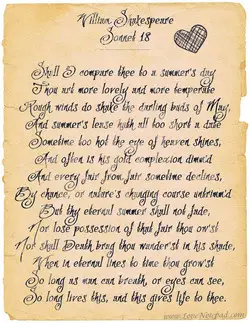 William Shakespeare
Sonnet 18
Shall I compare thee to a summer's day
Thou art more lovely and more temperate
Rough winds do shake the darling buds of May,
And summer's lease hath all too short a date
Sometime too hot the eye of heaven shines,
And often is his gold complexion dimm'd
And every fair from fair sometime declines,
By chance, or nature's changing course untrimm'd
But thy eternal summer shall not fade,
Nor lose possession of that fair thou ow'st
Nor shall Death brag thou wander'st in his shade,
When in eternal lines to time thou grow'st
So long as men can breath, or eyes can see,
So long lives this, and this gives life to thee.
www.LoveNotepad.com